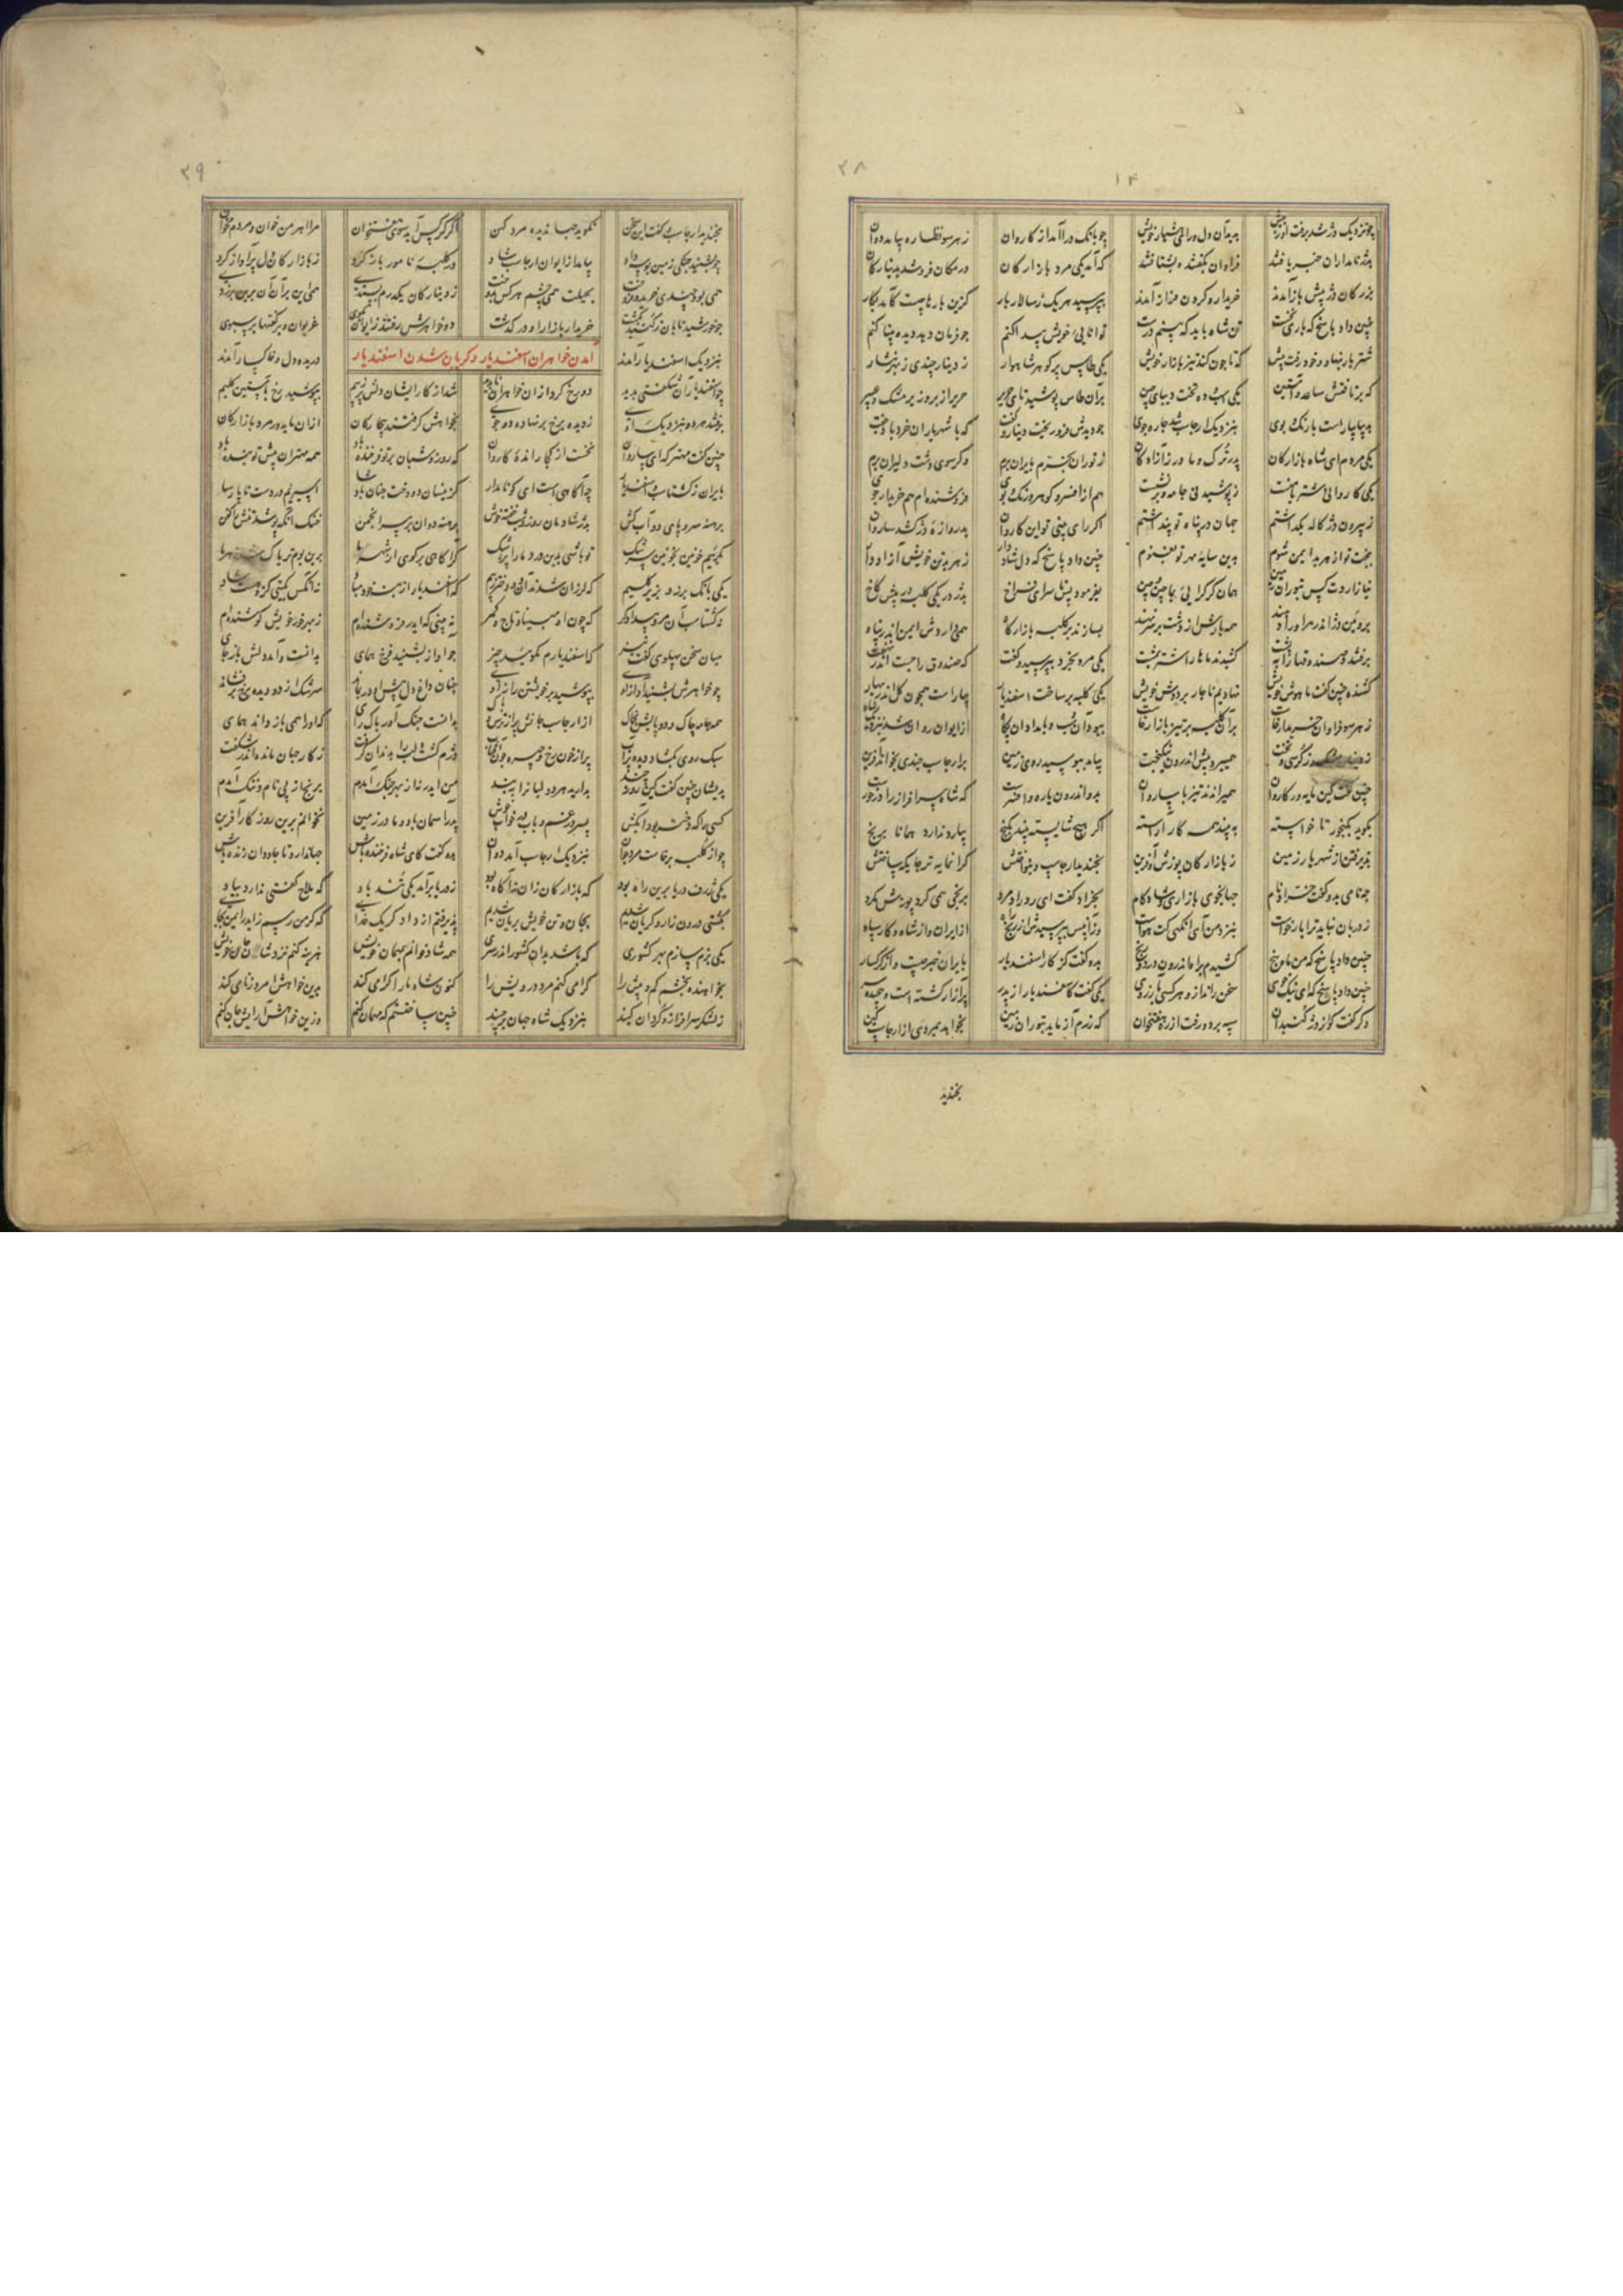 ۲۸
۱۴
چو نزدیک دژ شد برفت او ز پیش بدید آن دل و رای هشیار خویش چو بانک درا آمد از کاروان ز هر سو نظاره بیامد دوان
بدژ نامداران خبر یافتند فراوان بگفتند و بشتافتند که آمد یکی مرد بازارکان درمکان فروشد بدینارکان
بزرکان دژ پیش باز آمدند خریدار و کردن فراز آمدند بپرسید هر یک ز سالار بار کزین بارها چیست کآید بکار
چنین داد پاسخ که باری نخست تن شاه باید که بینم درست توانایی خویش پیدا کنم چو فرمان دهد دیده بینا کنم
شتر بار بنهاد و خود رفت پیش که تا چون کند تیز بازار خویش یکی طاس پر کوهر شاهوار ز دینار چندی ز بهر نثار
که بر تافتش ساعد و آستین یکی اسب و ده تخت دیبای چین بر آن طاس پوشیده تای حریر حریر از بر و زیر مشک و عبیر
به پیکار است با رنک بوی بنزدیک ارجاسب شد چاره جوی چو دیدش فرو ریخت دینار و گفت که با شهریاران خرد باد جفت
یکی مردم ای شاه بازارکان پدر ترک و مادر ز آزادکان ز توران بخرم بایران برم وکر سوی دشت دلیران برم
یکی کاروانی شتر با منست ز پوشیدنی جامه و بر نشست هم از افسر و کوهر و رنک بوی فروشنده ام هم خریدار جوی
ز بیرون دژ کاله بکذاشتم جهان در پناه تو پنداشتم اکر رای بینی تو این کاروان بدروازه دژ کشد ساروان
ببخت تو از هر بد ایمن شوم بدین سایه مهر تو بغنوم چنین داد پاسخ که دل شاد دار ز هر بد تن خویش آزاد دار
نیازاردت کس بتوران زمین همان کر کرایی بماچین و چین بفرمود پس تا سرای فراخ بدژ در یکی کلبه در پیش کاخ
برویین دژ اندر مر او را دهند همه بارش از دشت بر سر نهند بسازند بر کلبه بازارگاه همی داردش ایمن اندر پناه
برفتند و صندوقها را به پشت کشیدند و ماهار اشتر بمشت یکی مرد بخرد بپرسید و گفت که صندوق را چیست اندر نهفت
کشنده چنین کفت ما هوش خویش نهادیم ناچار بر دوش خویش یکی کلبه بر ساخت اسفندیار بیاراست همچون کل اندر بهار
ز هر سو فراوان خریدار خاست بر آن کلبه بر تیز بازار خاست ببود آن شب و بامداد پگاه از ایوان روان شد بنزدیک شاه
بیامد ببوسید روی زمین بر ارجاسب چندی بخواند آفرین
چنین گفت کین مایه ور کاروان همی راندند تیز با ساروان بدو اندرون یاره و افسرست که شاه سرافراز را درخورست
بگوید بگنجور تا خواسته ببیند همه کار آراسته اکر هیچ شایسته بیند بکنج بیارد ندارد همانا برنج
پذیرفتن از شهریار زمین ز بازارکان پوزش و آفرین بخندید ارجاسب و بنواختش کرانمایه تر جایکه ساختش
چه نامی بدو کفت خرّاد نام جهانجوی بازاری و شادکام بخرّاد کفت ای رد راد مرد برنجی همی کرد پوزش مکرد
ز دربان نباید ترا بار خواست بنزد من آی آنکهی کت هواست وز آن پس بپرسیدش از رنج راه از ایران و از شاه و کار سپاه
چنین داد پاسخ که من ماه پنج کشیدم براه اندرون درد و رنج بدو کفت کز کار اسفندیار بایران خبر چیست وز کرکسار
چنین داد پاسخ که ای نیک خوی سخن راند از و هر کسی بآرزوی یکی کفت کاسفندیار از پدر پر آزار کشته است و پیچیده سر
دکر گفت کو از دژ گنبدان سپه برد و رفت از ره هفتخوان که رزم آزماید بتوران زمین بخواهد بمردی از ارجاسب کین
بخندید
۲۹
بخندید ارجاسب گفت این سخن نگوید جهاندیده مرد کهن اکر کرکس آید سوی هفتخوان مرا اهرمن خوان و مردم مخوان
چو بشنید جنکی زمین بوسه داد بیامد از ایوان ارجاسب شاد در کلبه نامور باز کرد ز بازارکان دل پر آواز کرد
همی بود چندی خرید و فروخت بحیلت همی چشم هر کس بدوخت ز دینارکان یکدرم بستدی همی این بر آن آن برین بر زدی
چو خورشید تابان ز کنبد بکشت خریدار بازار او در کذشت دو خواهرش رفتند ز ایوان بکوی غریوان و بر کتفها بر سبوی
آمدن خواهران اسفندیار و کریان شدن اسفندیار
بنزدیک اسفندیار آمدند دریده دل و خاکسار آمدند
چو اسفندیار آن شکفتی بدید دو رخ کرد از آن خواهران ناپدید شد از کار ایشان دلش پر ز بیم بپوشید رخ بآستین کلیم
برفتند هر دو بنزدیک اوی ز دیده برخ بر نهاده دو جوی بخواهش گرفتند بیچارکان از آن مایه ور مرد بازارکان
چنین کفت مهتر که ای ساروان نخست از کجا راندهٔ کاروان که روز و شبان بر تو فرخنده باد همه مهتران پیش تو بنده باد
بایران ز کشتاسب و اسفندیار چه آکاهی است ای کو نامدار کزینسان دو دخت چنان پادشا اسیریم در دست ناپارسا
برهنه سر و پای و دو آب کش پدر شادمان روز و شب خفته خوش برهنه دوان بر سر انجمن خنک آنکه پوشد تنش را کفن
بگرییم خونین بخونین سرشک تو باشی بدین درد ما را پزشک گر آکاهی بر کوی از شهر ما برین بوم تریاک شد زهر ما
یکی بانک بر زد بزیر کلیم که لرزان شدند آن دو دختر ز بیم که اسفندیار از بنه خود مباد نه آنکس بکیتی کزو هست شاد
نه کشتاسب آن مرد بیدادگر که چون او مبیناد تاج و کمر نه بینی که ایدر فروشنده ام ز بهر خور خویش کوشنده ام
میان سخن پهلوی کفت نیز که اسفندیارم مکویید چیز چو آواز بشنید فرخ همای بدانست و آمد دلش باز جای
چو خواهرش بشنید آواز اوی بپوشید بر خویشتن راز اوی چنان داغ دل پیش او در بماند سرشک از دو دیده برخ برفشاند
همه جامه چاک و دو پایش بخاک از ارجاسب جانش پر از ترس و باک بدانست جنک آور پاک رای که او را همی باز داند همای
سبک روی بکشاد و دیده پر آب پر از خون رخ و چهره چون آفتاب دژم کشت و لب را بدندان گرفت ز کار جهان مانده اندر شگفت
بدیشان چنین کفت کین روز چند بدارید هر دو لبانرا به بند من ایدر نه از بهر جنک آمدم برنج از پی نام و ننک آمدم
کسی را که دختر بود آبکش پسر در غم و باب در خواب خوش پدر آسمان باد و مادر زمین نخوانم برین روز کار آفرین
چو از کلبه برخاست مرد جوان بنزدیک ارجاسب آمد دوان بدو کفت کای شاه فرخنده باش جهاندار و تا جاودان زنده باش
یکی ژرف دریا برین راه بود که بازارکان زان نه آکاه بود ز دریا بر آمد یکی تند باد که ملاح کفتی ندارد بیاد
بکشتی درون زار و کریان شدیم بجان و تن خویش بریان شدیم پذیرفتم از دادگر یک خدا که کر من رسم زاید ایمن بجا
یکی بزم سازم بهر کشوری که باشد بدان کشور اندر سری همه شاد خوانم بمهمان خویش هزینه کنم نزد شان جان خویش
بخواهنده بخشم کم و بیش را گرامی کنم مرد درویش را کنون شاه ما را کرامی کند بدین خواهش امروز نامی کند
ز لشکر سرافراز و گردان کیند بنزدیک شاه جهان برچیند چنین ساختستم که مهمان کنم وزین خواهش آرایش جان کنم